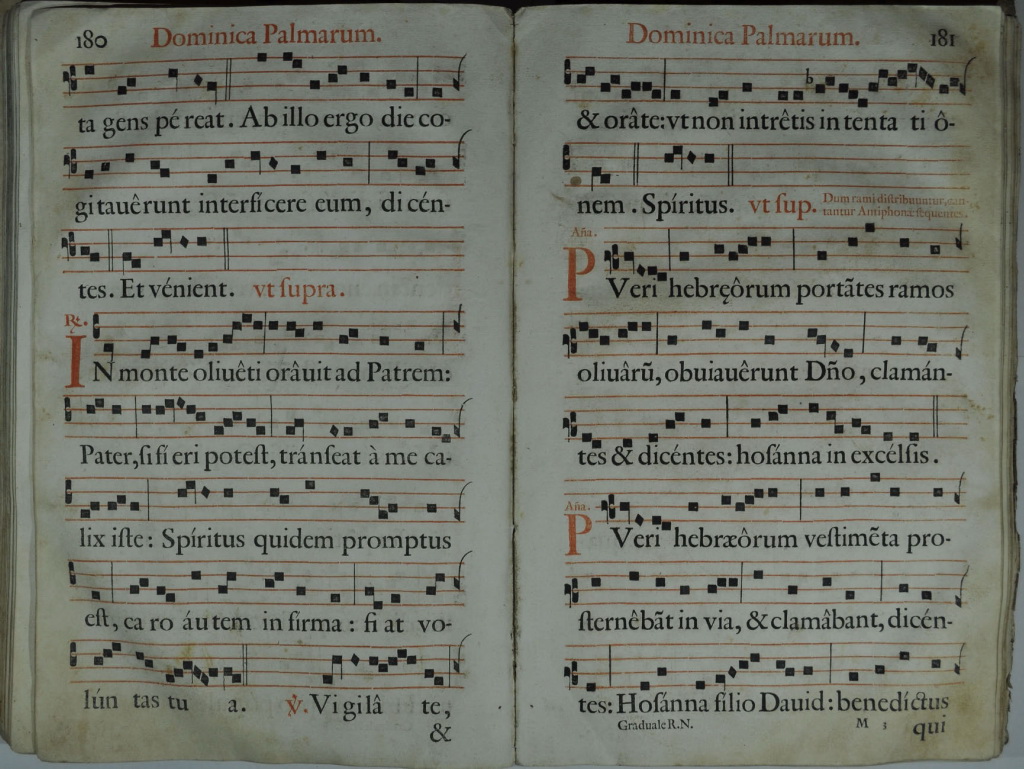 180 Dominica Palmarum.
ta gens pé reat. Ab illo ergo die co-
gi tauêrunt interficere eum, di cén-
tes. Et vénient. vt supra.
℞.
IN monte oliuêti orâuit ad Patrem:
Pater, si fi eri potest, tránseat à me ca-
lix iste: Spíritus quidem promptus
est, ca ro áu tem in firma: fi at vo-
lún tas tu a. ℣. Vi gi lâ te,
&
Dominica Palmarum. 181
& orâte: vt non intrêtis in tenta ti ô-
nem. Spíritus. vt sup. Dum rami distribuuntur, can-
tantur Antiphonæ sequentes.
Aña.
PVeri hebręôrum portãtes ramos
oliuârũ, obuiauêrunt Dño, clamán-
tes & dicéntes: hosánna in excélsis.
Aña.
PVeri hebræôrum vestimẽta pro-
sternêbãt in via, & clamâbant, dicén-
tes: Hosánna filio Dauid: benedíctus
Graduale R.N. M 3 qui